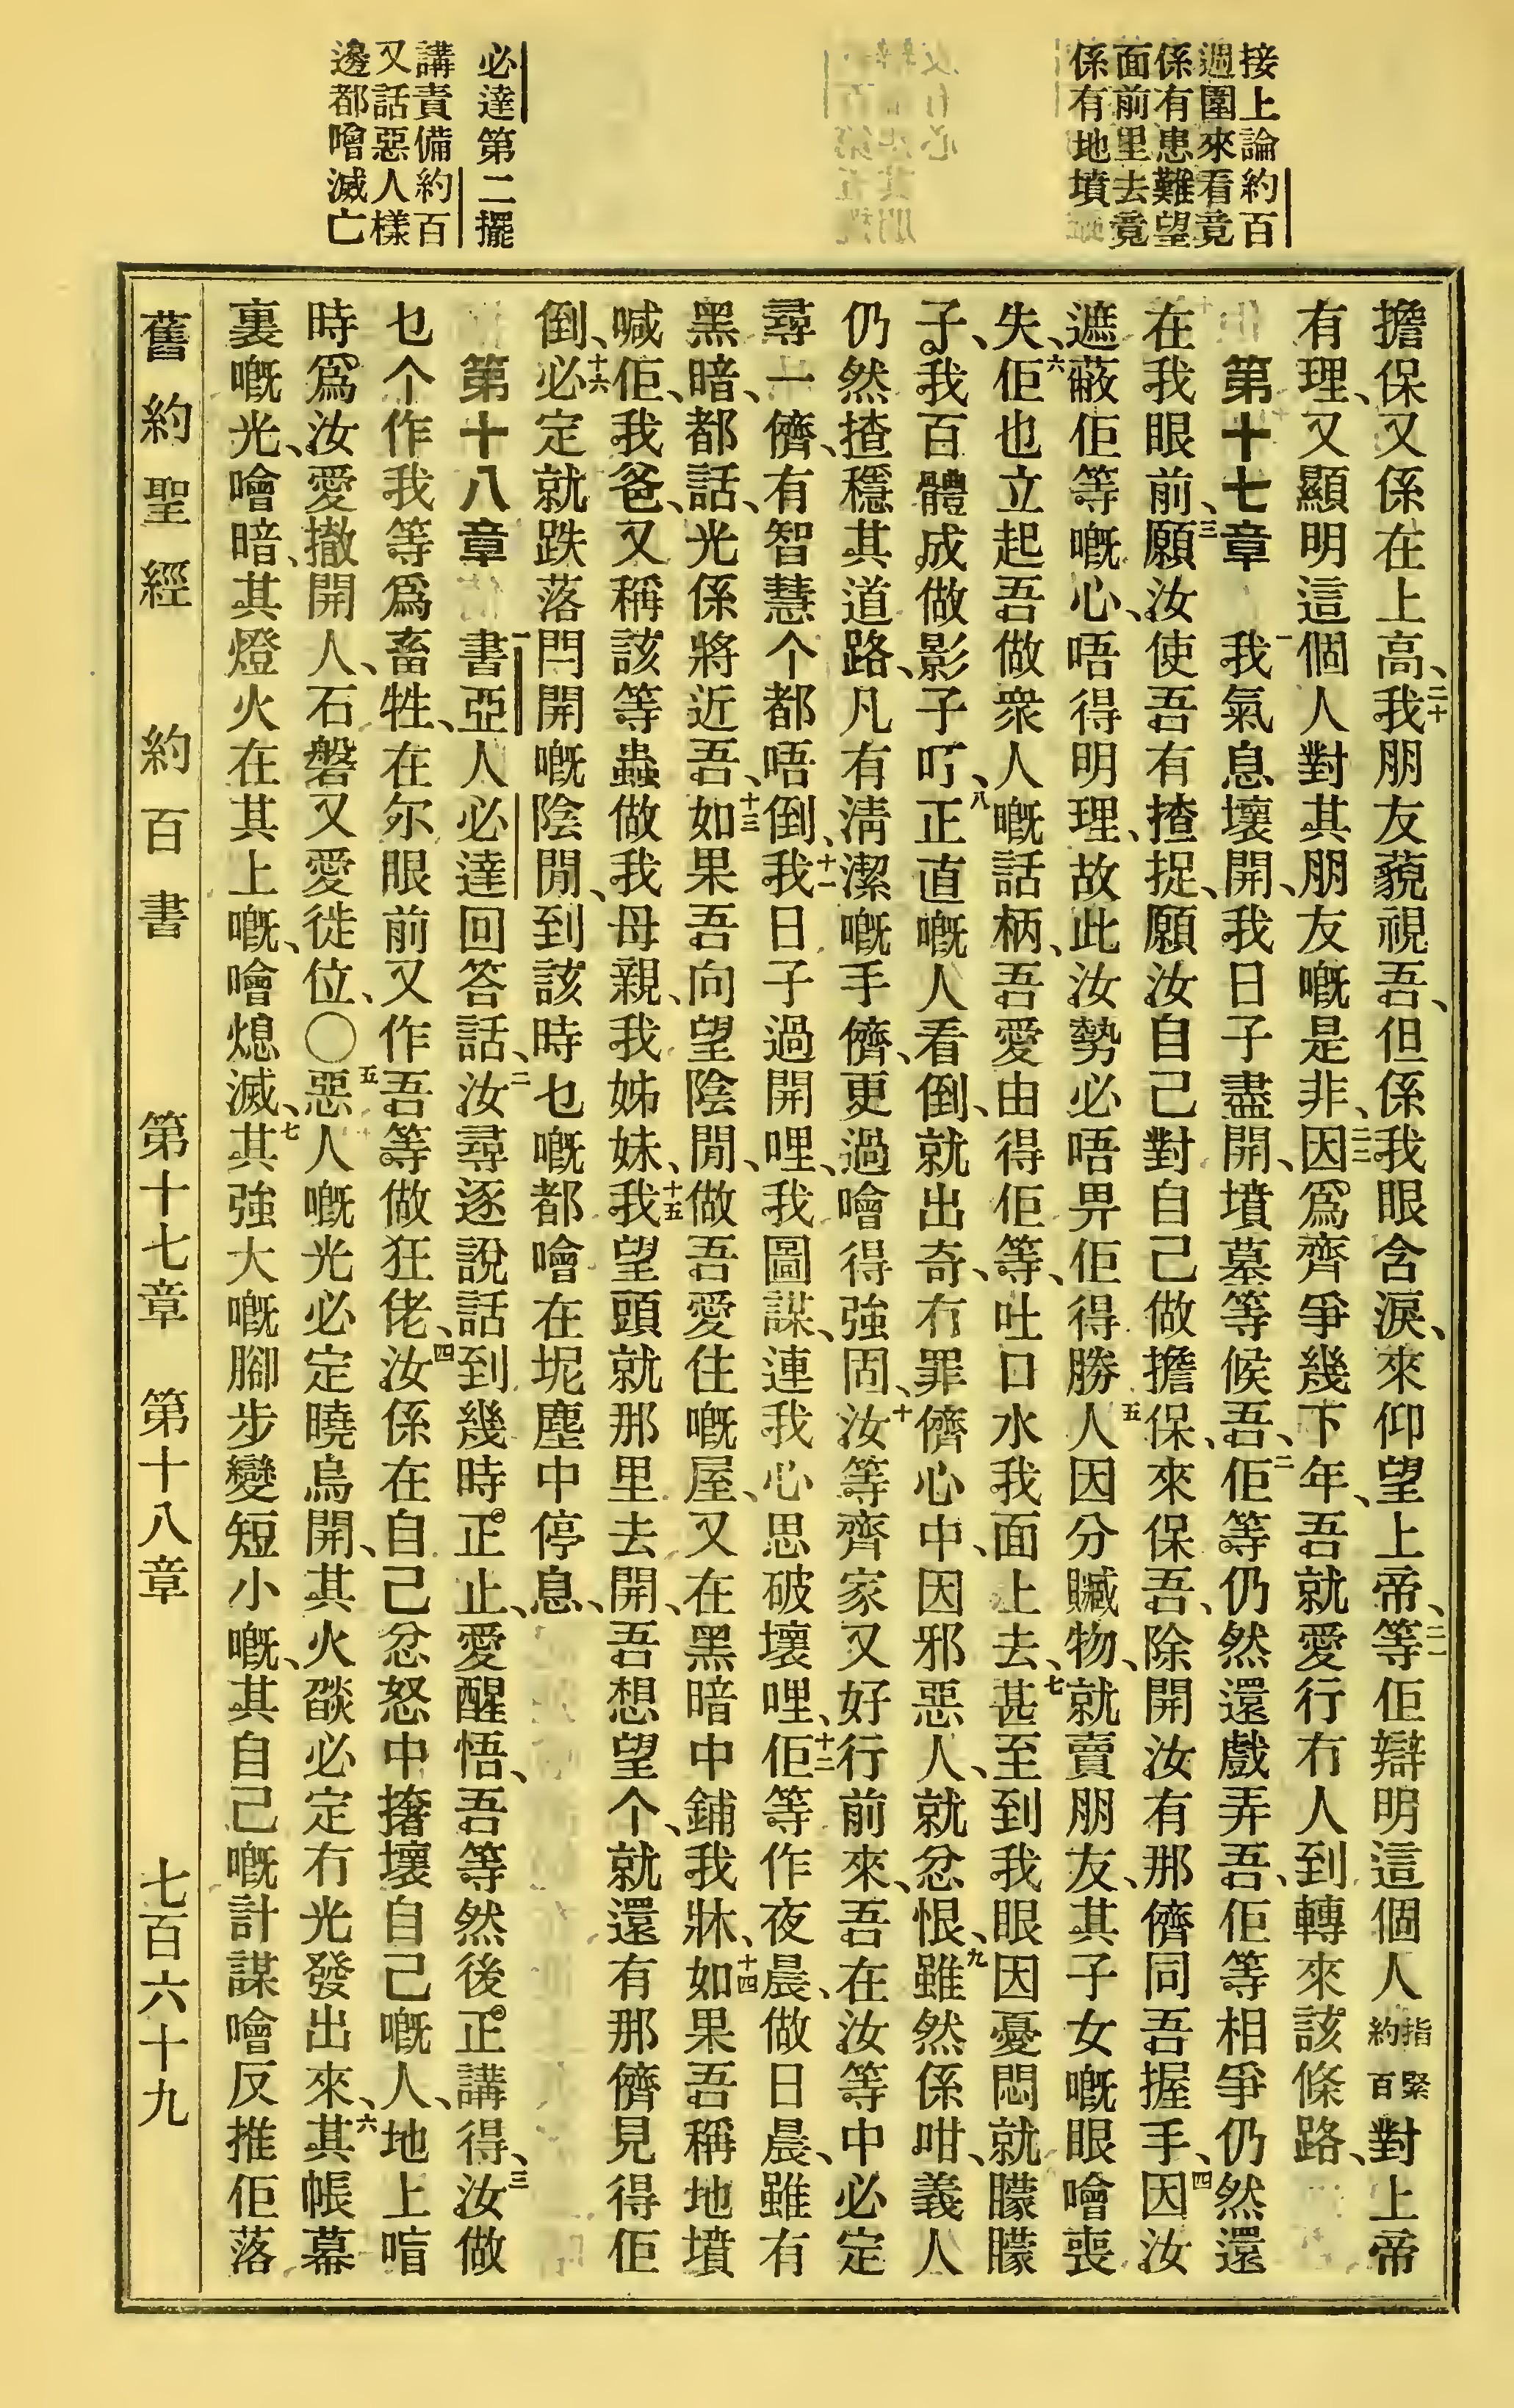 接上論約百
週圍來看竟
係有患難望
面前里去竟
係有地墳
必達第二擺
講責備約百
又話惡人樣
邊都噲滅亡
擔保又係在上高、二十我朋友藐視吾、但係我眼含淚、來仰望上帝、二一等佢辯明這個人指緊約百對上帝
有理、又顯明這個人對其朋友嘅是非、二二因爲齊爭幾下年、吾就愛行冇人到轉來該條路、
第十七章 一我氣息壞開、我日子盡開、墳墓等候吾、二佢等仍然還戲弄吾、佢等相爭仍然還
在我眼前、三願汝使吾有揸捉、願汝自己對自己做擔保、來保吾、除開汝有那儕同吾握手、四因汝
遮蔽佢等嘅心、唔得明理、故此汝勢必唔畀佢得勝、五人因分贓物、就賣朋友、其子女嘅眼噲喪
失、六佢也立起吾做衆人嘅話柄、吾愛由得佢等、吐口水我面上去、七甚至到我眼因憂悶就矇矇
子、我百體成做影子叮、八正直嘅人看倒、就出奇、冇罪儕心中、因邪惡人、就忿恨、九雖然係咁、義人
仍然揸穩其道路、凡有淸潔嘅手儕、更過噲得強固、十汝等齊家又好行前來、吾在汝等中必定
尋一儕、有智慧个都唔倒、十一我日子過開哩、我圖謀、連我心思破壞哩、十二佢等作夜晨、做日晨、雖有
黑暗、都話、光係將近吾、十三如果吾向望陰間、做吾愛住嘅屋、又在黑暗中鋪我牀、十四如果吾稱地墳
喊佢、我爸、又稱該等蟲做我母親、我姊妹、十五我望頭就那里去開、吾想望个、就還有那儕見得佢
倒、十六必定就跌落閂開嘅陰間、到該時乜嘅都噲在坭塵中停息、
第十八章 一書亞人必達回答話、二汝尋逐說話到幾時正止、愛醒悟、吾等然後正講得、三汝做
乜个作我等爲畜牲、在尔眼前又作吾等做狂佬、四汝係在自己忿怒中撦壞自己嘅人、地上喑
時爲汝愛撤開人、石磐又愛徙位、〇五惡人嘅光必定曉烏開、其火燄必定冇光發出來、六其帳幕
裏嘅光、噲暗、其燈火在其上嘅、噲熄滅、七其強大嘅腳步變短小嘅、其自己嘅計謀噲反推佢落
舊約聖經 約百書 第十七章 第十八章 七百六十九